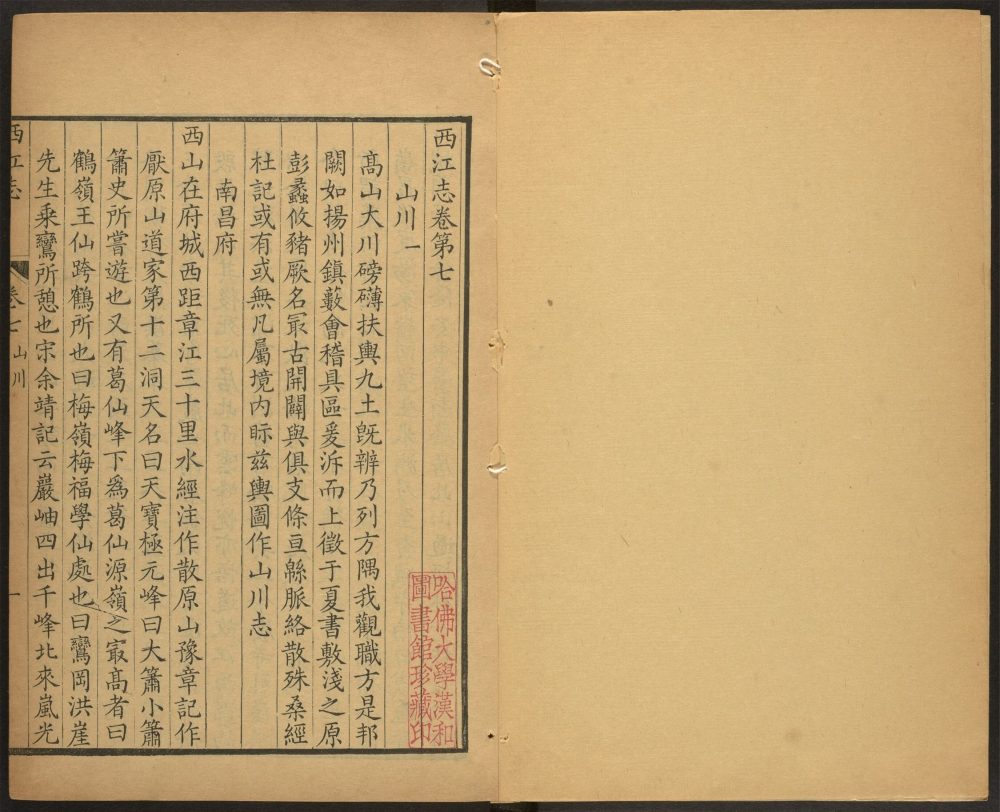 西江志卷第七
山川一
髙山大川磅礴扶輿九土旣辨乃列方隅我觀職方是邦
闕如揚州鎭藪會稽具區爰泝而上徵于夏書敷淺之原
彭蠡攸豬厥名冣古開闢與俱支條亘緜脈絡散殊桑經
杜記或有或無凡屬境内眎兹輿圖作山川志
南昌府
西山在府城西距章江三十里水經注作散原山豫章記作
厭原山道家第十二洞天名曰天寶極元峰曰大簫小簫
簫史所嘗遊也又有葛仙峰下爲葛仙源嶺之寂髙者曰
鶴嶺王仙跨鶴所也曰梅嶺梅福學仙處也曰鸞岡洪崖
先生乘鸞所憩也宋余靖記云巖岫四出千峰北來嵐光
西江志
卷七
山川
一
哈佛大學漢和
圖書館珍藏印